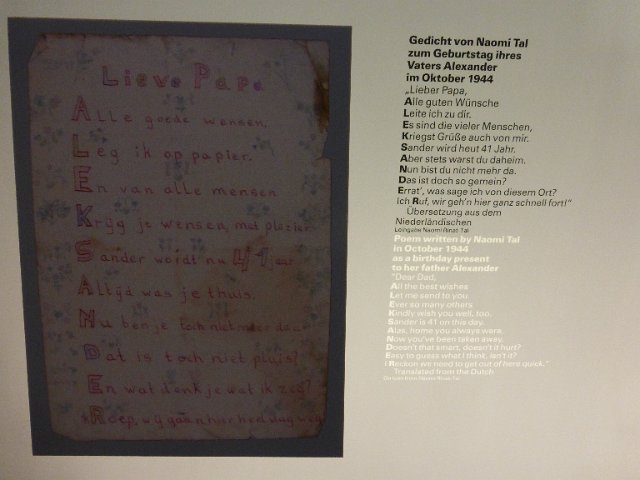 Lieve Papa
Alle goede wensen,
Leg ik op papier.
En van alle mensen
Krijg je wensen, met plezier
Sander wordt nu 41 jaar
Altijd was je thuis.
Nu ben je toch niet meer daar
Dat is toch niet pluis?
En wat denk je wat ik zeg?
Roep, wij gaan hier heel vlug weg
Gedicht von Naomi Tal
zum Geburtstag ihres
Vaters Alexander
im Oktober 1944
„Lieber Papa,
Alle guten Wünsche
Leite ich zu dir.
Es sind die vieler Menschen,
Kriegst Grüße auch von mir.
Sander wird heut 41 Jahr.
Aber stets warst du daheim.
Nun bist du nicht mehr da.
Das ist doch so gemein?
Errat', was sage ich von diesem Ort?
Ich Ruf, wir geh'n hier ganz schnell fort!"
Übersetzung aus dem
Niederländischen
Leihgabe Naomi Rinat Tal
Poem written by Naomi Tal
in October 1944
as a birthday present
to her father Alexander
"Dear Dad,
All the best wishes
Let me send to you
Ever so many others
Kindly wish you well, too.
Sander is 41 on this day.
Alas, home you always were,
Now you've been taken away.
Doesn't that smart, doesn't it hurt?
Easy to guess what I think, isn't it?
I Reckon we need to get out of here quick."
Translated from the Dutch
On loan from Naomi Rinat Tal